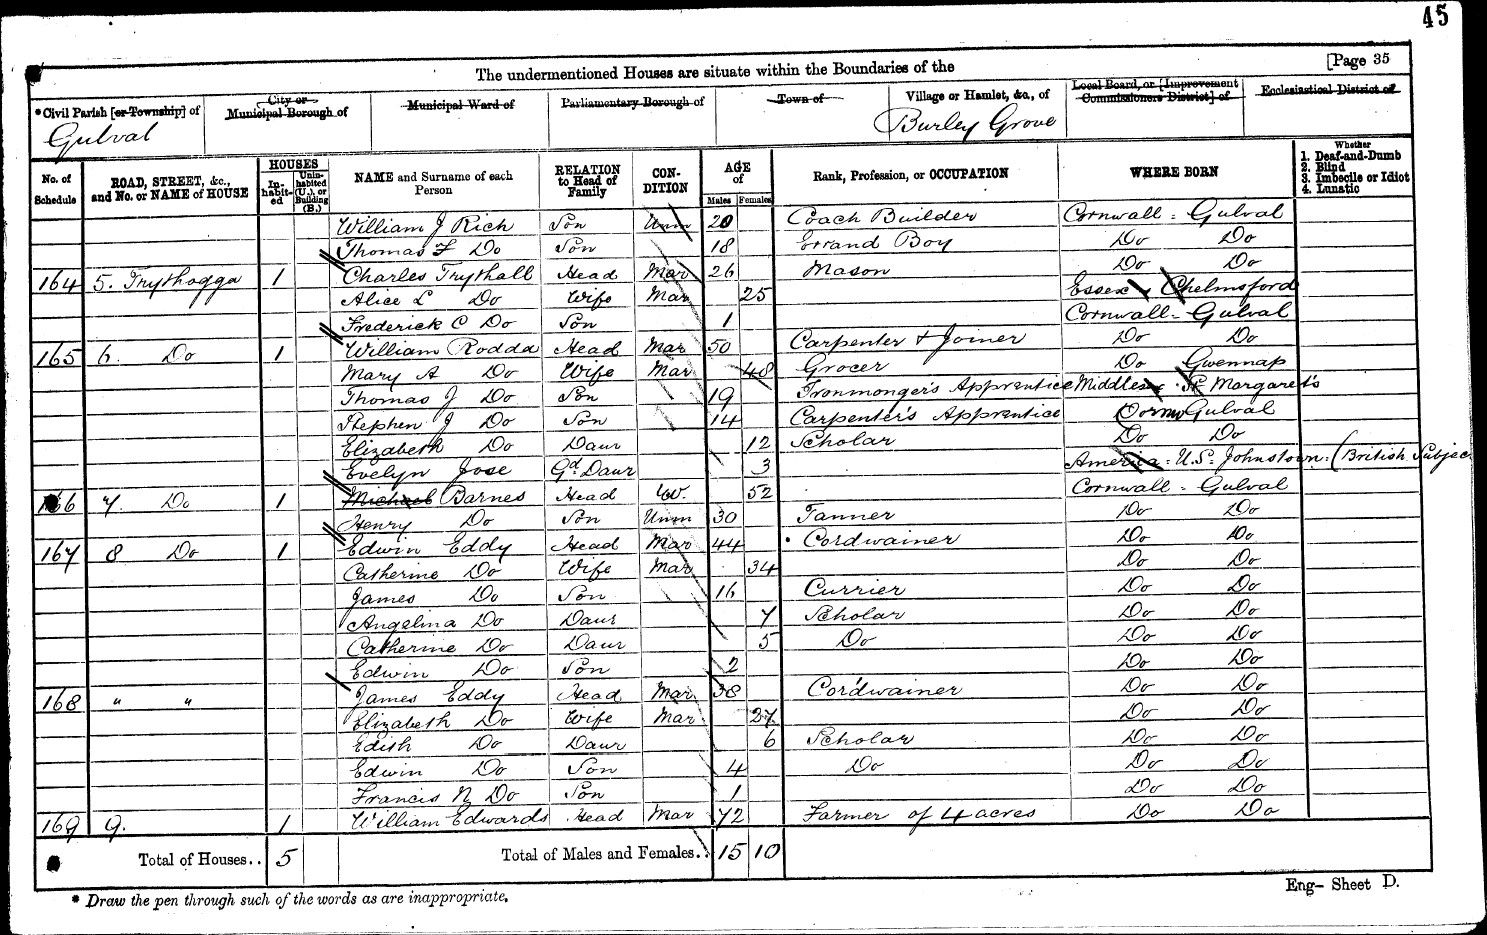 45
The undermentioned Houses are situate within the Boundaries of the [Page 35
* Civil Parish [or Township] of City or Municipal Borough of Municipal Ward of Parliamentary Borough of Town of Village or Hamlet, &c., of Local Board, or [Improvement Commissioners District] of Ecclesiastical District of
Gulval Burley Grove
No. of Schedule ROAD, STREET, &c., and No. or NAME of HOUSE HOUSES Inhabited Uninhabited (U.), or Building (B.) NAME and Surname of each Person RELATION to Head of Family CONDITION AGE of Males Females Rank, Profession, or OCCUPATION WHERE BORN Whether 1. Deaf-and-Dumb 2. Blind 3. Imbecile or Idiot 4. Lunatic
William J Rich Son Unm 20 Coach Builder Cornwall - Gulval
Thomas F Do Son 18 Errand Boy Do Do
164 5. Trythogga 1 Charles Trythall Head Mar 26 Mason Do Do
Alice L Do Wife Mar 25 Essex Chelmsford
Frederick C Do Son 1 Cornwall - Gulval
165 6. Do 1 William Rodda Head Mar 50 Carpenter & Joiner Do Do
Mary A Do Wife Mar 48 Grocer Do Gwennap
Thomas J Do Son 19 Ironmonger's Apprentice Middlesex St Margaret's
Stephen J Do Son 14 Carpenter's Apprentice Cornw Gulval
Elizabeth Do Daur 12 Scholar Do Do
Evelyn Jose Gd Daur 3 America - U.S. Johnstown. (British Subjec
166 7. Do 1 Michael Barnes Head W. 52 Cornwall - Gulval
Henry Do Son Unm 30 Tanner Do Do
167 8 Do 1 Edwin Eddy Head Mar 44 Cordwainer Do Do
Catherine Do Wife Mar 34 Do Do
James Do Son 16 Currier Do Do
Angelina Do Daur 7 Scholar Do Do
Catherine Do Daur 5 Do Do Do
Edwin Do Son 2 Do Do
168 " " James Eddy Head Mar 38 Cordwainer Do Do
Elizabeth Do Wife Mar 27 Do Do
Edith Do Daur 6 Scholar Do Do
Edwin Do Son 4 Do Do Do
Francis N Do Son 1 Do Do
169 9. 1 William Edwards Head Mar 72 Farmer of 4 acres Do Do
Total of Houses.. 5 Total of Males and Females.. 15 10
Eng- Sheet D.
* Draw the pen through such of the words as are inappropriate.